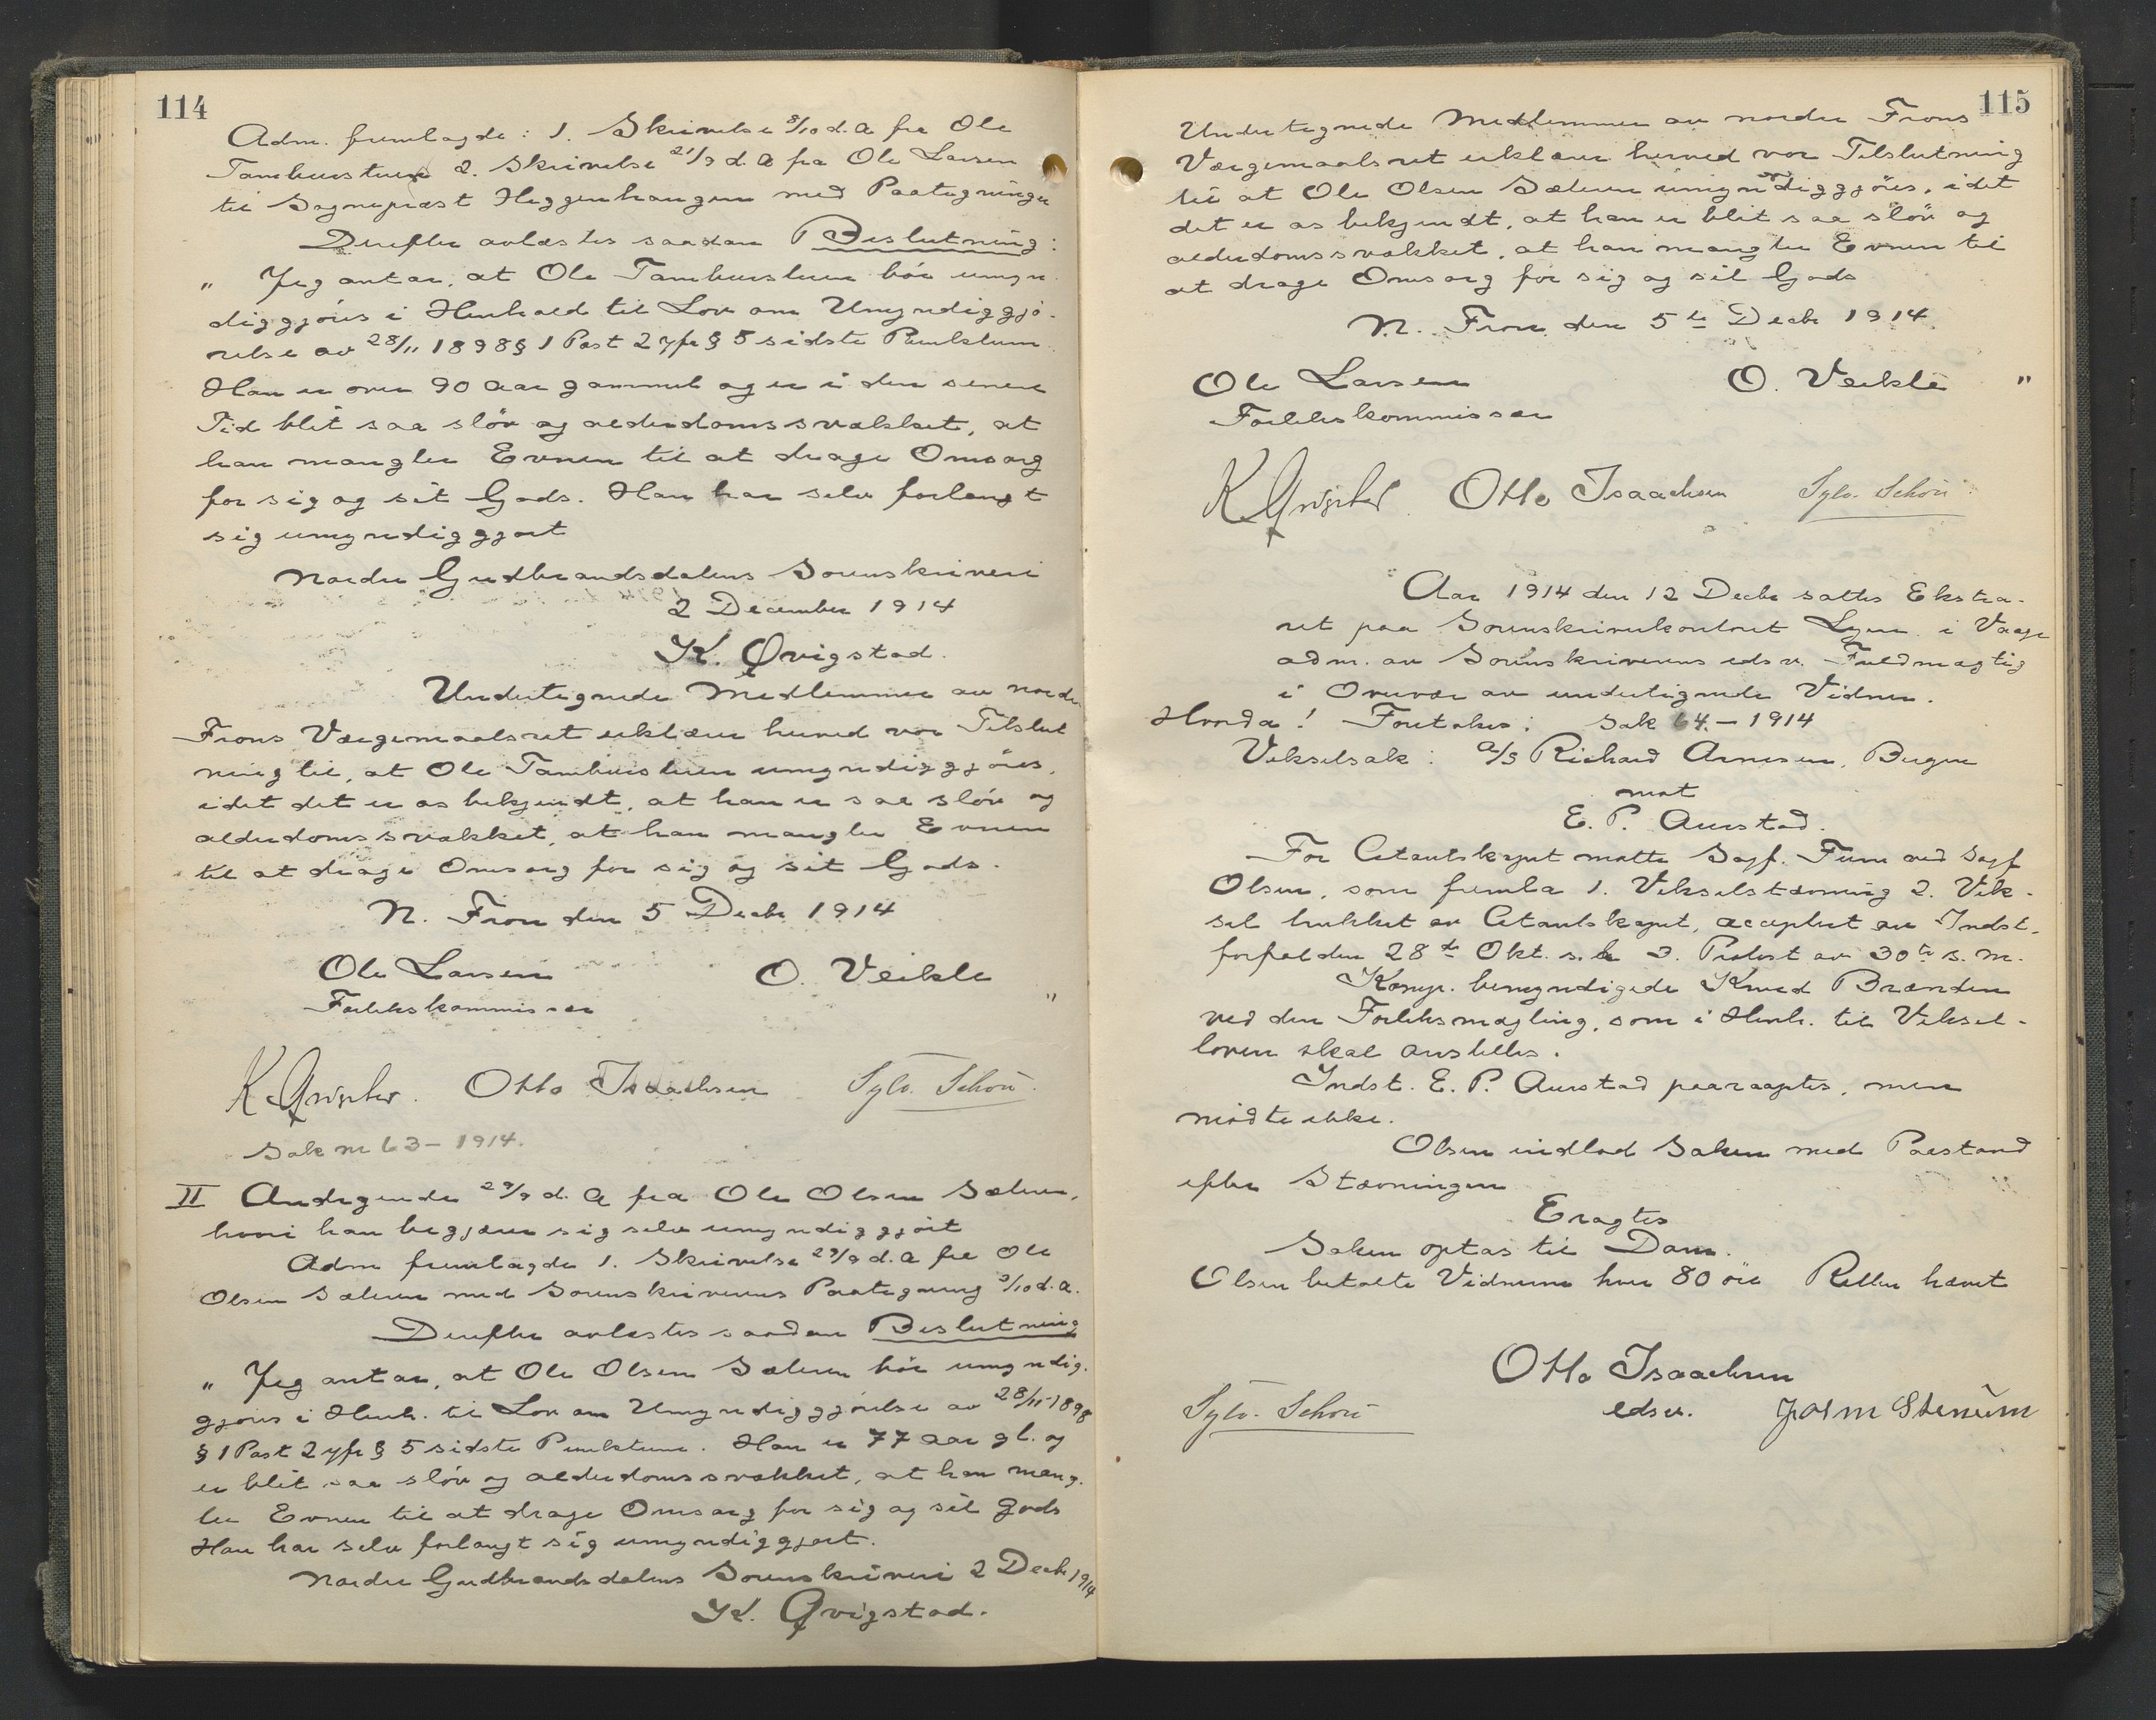 114
Adm. fremlagde: 1. Skrivelse 8/10 d.a fra Ole
Tamburstuen 2. Skrivelse 21/9 d.a fra Ole Larsen
til Sogneprest Heggenhaugen med Paategninger
Derefter avlæstes saadan Beslutning:
" Jeg antar, at Ole Tamburstuen bør umyn
diggjøres i Henhold til Lov om Umyndiggjø-
relse av 28/11 1898 § 1 Post 2 jfr § 5 sidste Punktum
Han er over 90 aar gammel og er i den senere
Tid blit saa sløv og alderdomssvækket, at
han mangler Evnen til at drage Omsorg
for sig og sit Gods. Han har selv forlangt
sig umyndiggjort
Nordre Gudbrandsdalens Sorenskriveri
2 December 1914
K. Qvigstad.
Undertegnede Medlemmer av nordre
Frons Værgemaalsret erklærer herved vor Tilslut
ning til, at Ole Tamburstuen umyndiggjøres,
idet det er os bekjendt, at han er saa sløv og
alderdomssvækket, at han mangler Evnen
til at drage Omsorg for sig og sit Gods.
N. Fron den 5 Decbr 1914
Ole Larsen O. Veikle
Forlikskommissær "
K Qvigstad. Otto Isaachsen Sylv. Schou
Sak nr 63 – 1914.
II Andragende 29/9 d.a fra Ole Olsen Sæteren,
hvori han begjærer sig selv umyndiggjort
Adm fremlagde 1. Skrivelse 29/9 d.a fra Ole
Olsen Sæteren med Sorenskriverens Paategning 3/10 d.a.
Derefter avlæstes saadan Beslutning
" Jeg antar, at Ole Olsen Sæteren bør umyndig-
gjøres i Henh. til Lov om Umyndiggjørelse av 28/11-1898
§ 1 Post 2 jfr § 5 sidste Punktum. Han er 77 aar gl. og
er blit saa sløv og alderdomssvækket, at han mang-
ler Evnen til at drage Omsorg for sig og sit Gods
Han har selv forlangt sig umyndiggjort.
Nordre Gudbrandsdalens Sorenskriveri 2 Decbr 1914
K. Qvigstad.
115
Undertegnede Medlemmer av nordre Frons
Værgemaalsret erklærer herved vor Tilslutning
til at Ole Olsen Sæteren umyndiggjøres, idet
det er os bekjendt, at han er blit saa sløv og
alderdomssvækket, at han mangler Evnen til
at drage Omsorg for sig og sit Gods
N. Fron den 5te Decbr 1914
Ole Larsen O. Veikle "
Forlikskommissær
K Qvigstad. Otto Isaachsen Sylv. Schou
Aar 1914 den 12 Decbr sattes Ekstra-
ret paa Sorenskriverkontoret Lyen i Vaage
adm. av Sorenskriverens edsv. Fuldmægtig
i Overvær av undertegnede Vidner.
Hvorda! Foretokes: Sak 64 – 1914
Vekselsak: A/S Richard Arnesen, Bergen
mot
E. P. Aurstad.
For Citantskapet møtte Sagf. Furu ved Sagf
Olsen, som fremla 1. Vekselstævning 2. Vek-
sel trukket av Citantskapet, acceptert av Indst.
forfalden 28de Okt. s.l. 3. Protest av 30te s. m.
Komp. bemyndigede Knud Brænden
ved den Forliksmægling, som i Henh. til Veksel-
loven skal anstilles.
Indst. E. P. Aurstad paaraaptes, men
mødte ikke.
Olsen indlod Saken med Paastand
efter Stævningen
Eragtes
Saken optas til Dom.
Olsen betalte Vidnerne hver 80 øre Retten hævet
Otto Isaachsen
Sylv. Schou edsv. Jorm Stenum